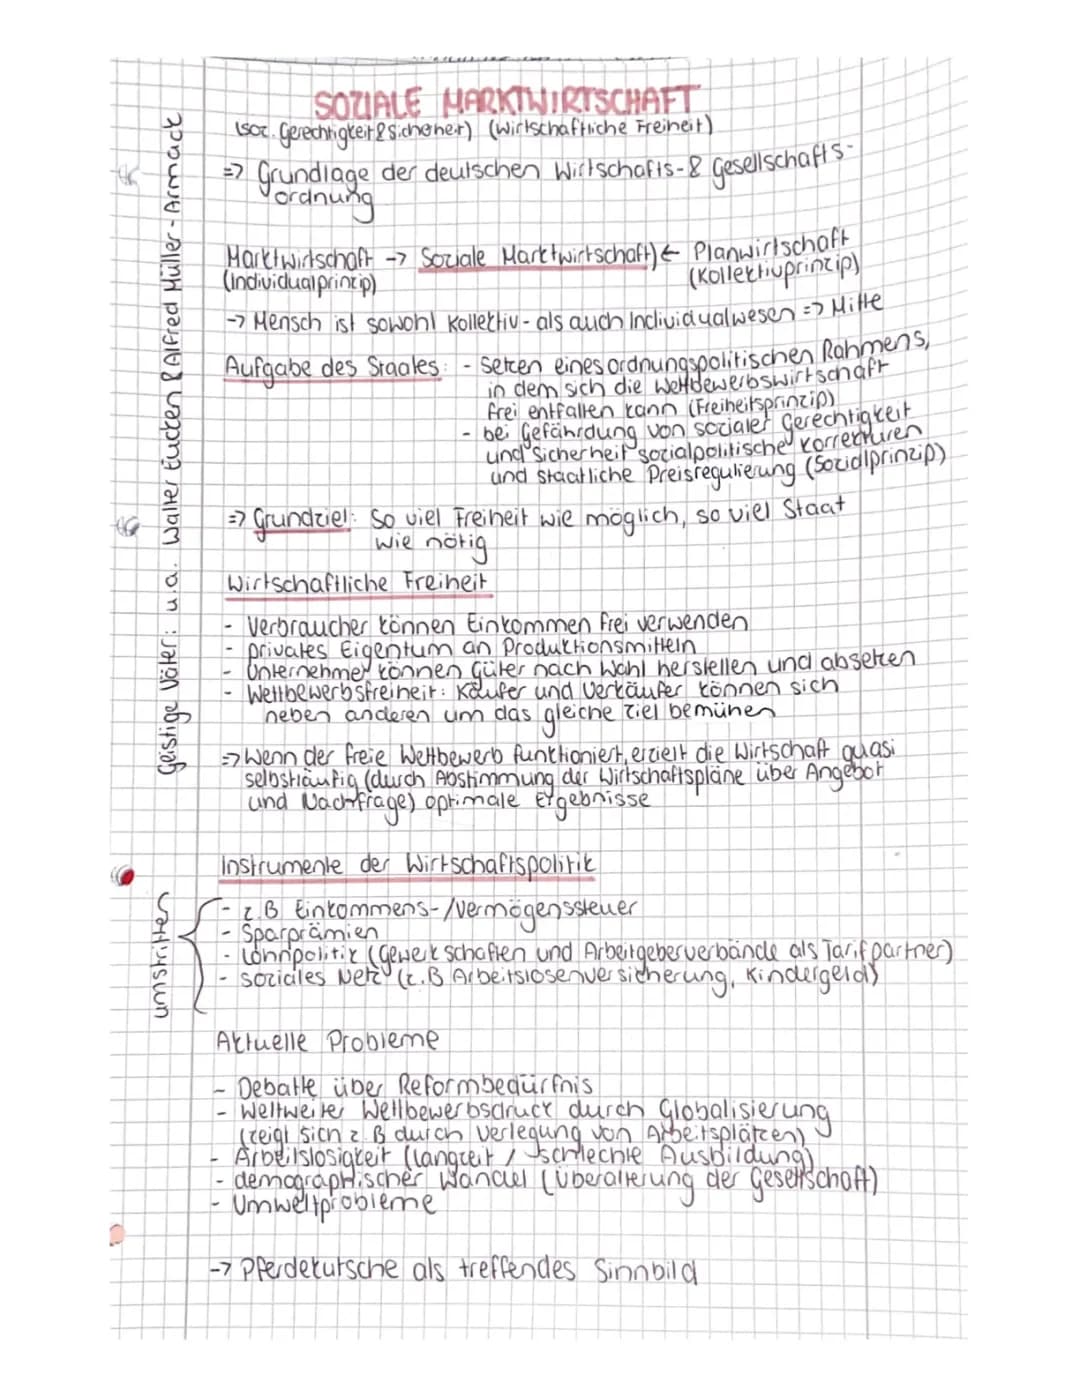 SOZIALE MARKTWIRTSCHAFT
(soz. Gerechtigkeit & Sicherheit) (Wirtschaftliche Freiheit)
=> Grundlage der deutschen Wirtschafts- & Gesellschafts-
ordnung
Marktwirtschaft -> Soziale Marktwirtschaft) <- Planwirtschaft
(Individualprinzip) (Kollektivprinzip)
-> Mensch ist sowohl Kollektiv- als auch Individualwesen => Mitte
Aufgabe des Staates: - Setzen eines ordnungspolitischen Rahmens,
in dem sich die Wettbewerbswirtschaft
frei entfalten kann (Freiheitsprinzip)
- bei Gefährdung von sozialer Gerechtigkeit
und Sicherheit sozialpolitische Korrekturen
und staatliche Preisregulierung (Sozialprinzip)
=> Grundziel: So viel Freiheit wie möglich, so viel Staat
wie nötig
Wirtschaftliche Freiheit
- Verbraucher können Einkommen frei verwenden
- privates Eigentum an Produktionsmitteln
- Unternehmer können Güter nach Wahl herstellen und absetzen
- Wettbewerbsfreiheit: Käufer und Verkäufer können sich
neben anderen um das gleiche Ziel bemühen
=> Wenn der freie Wettbewerb funktioniert, erzielt die Wirtschaft quasi
selbstläufig (durch Abstimmung der Wirtschaftspläne über Angebot
und Nachfrage) optimale Ergebnisse
Geistige Väter: u.a. Walter Eucken & Alfred Müller-Armack
Instrumente der Wirtschaftspolitik
umstritten
- z.B Einkommens-/Vermögenssteuer
- Sparprämien
- Lohnpolitik (Gewerkschaften und Arbeitgeberverbände als Tarifpartner)
- soziales Netz (z.B Arbeitslosenversicherung, Kindergeld)
Aktuelle Probleme
- Debatte über Reformbedürfnis
- Weltweiter Wettbewerbsdruck durch Globalisierung
(zeigt sich z.B durch Verlegung von Arbeitsplätzen)
- Arbeitslosigkeit (langzeit / schlechte Ausbildung)
- demographischer Wandel (Überalterung der Gesellschaft)
- Umweltprobleme
-> Pferdekutsche als treffendes Sinnbild